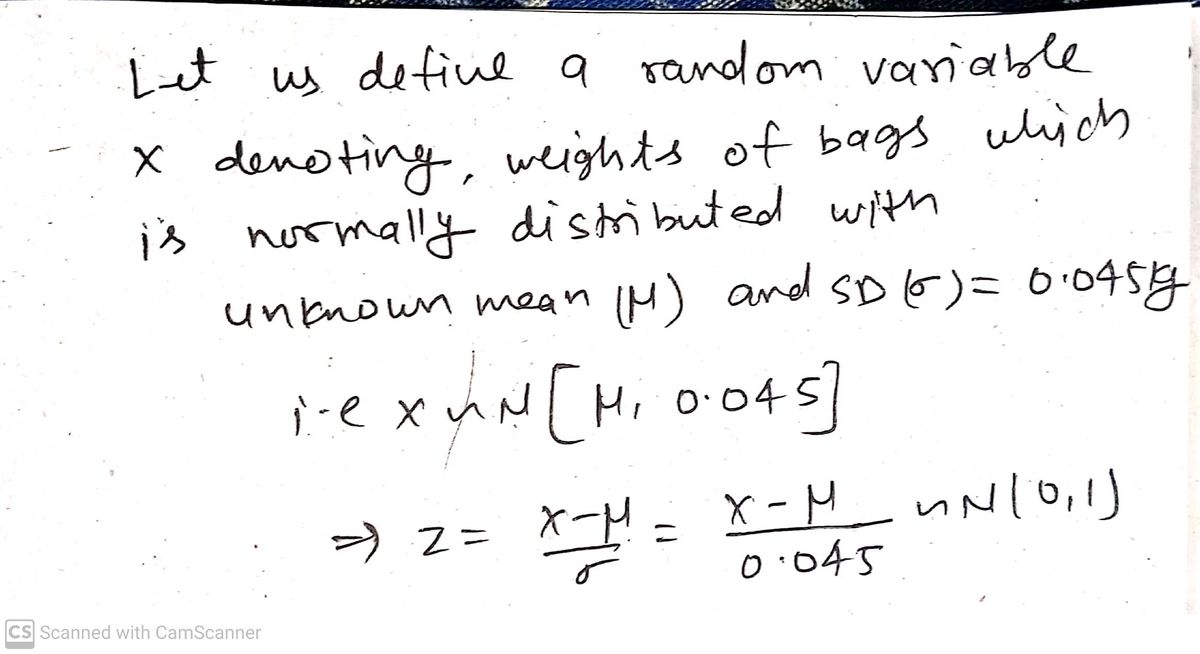 Let us define a random variable
X denoting, weights of bags which
is normally distributed with
unknown mean (μ) and SD (σ) = 0.045kg
i.e X ~ N [μ, 0.045]
⇒ Z = X-μ/σ = X-μ/0.045 ~ N(0,1)
CS Scanned with CamScanner